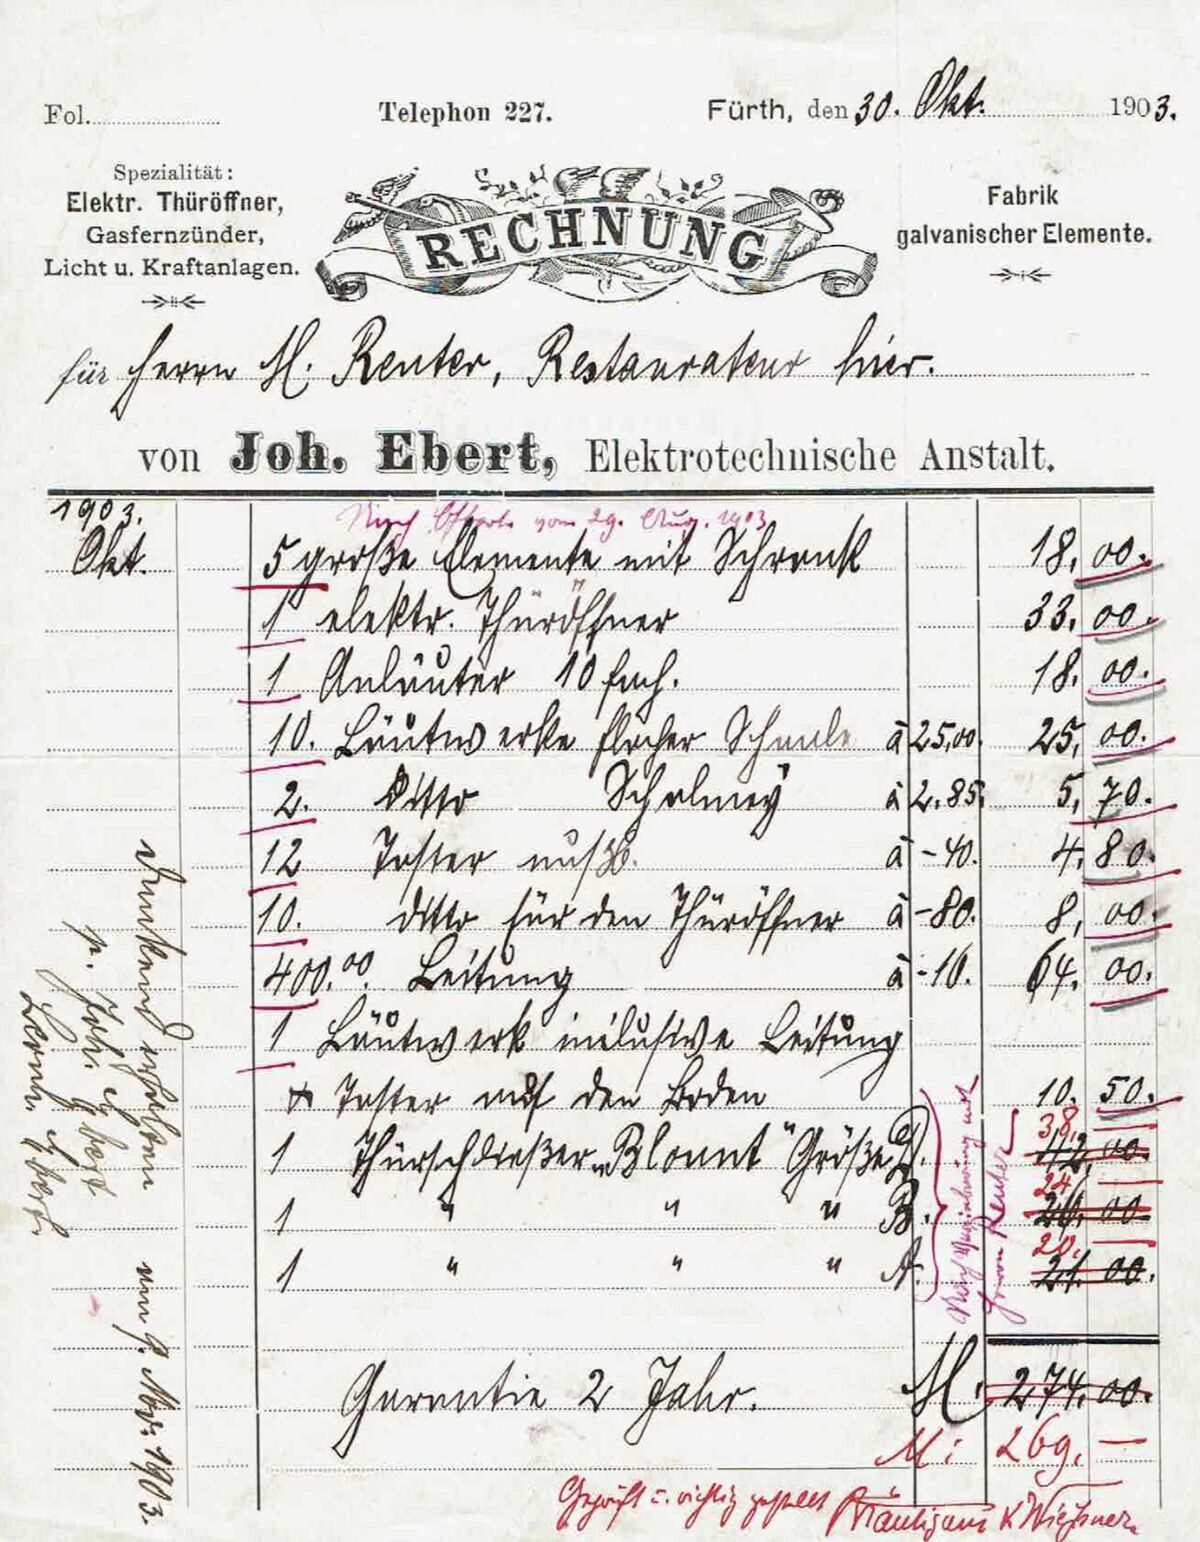 Fol.
Telephon 227.
Fürth, den 30. Okt. 1903.
Spezialität:
Elektr. Thüröffner,
Gasfernzünder,
Licht u. Kraftanlagen.
RECHNUNG
Fabrik
galvanischer Elemente.
für Herrn M. Reuter, Restaurateur hier.
von Joh. Ebert, Elektrotechnische Anstalt.
1903.
Nach Offert. vom 29. Aug. 1903
Okt. 5 große Elemente mit Schrank 18. 00.
1 elektr. Thüröffner 33. 00.
1 Anläuter 10 fach. 18. 00.
10. Läutwerke flacher Schaale à 25,00. 25. 00.
2. Ditto Schalmey à 2.85. 5. 70.
12 Taster à -40. 4. 80.
10. ditto für den Thüröffner à -80. 8. 00.
400.00 Leitung à -16. 64. 00.
1 Läutwerk inclusive Leitung
& Taster auf den Boden 10. 50.
1 Thürschließer „Blount" Größe D. 42. 00. 38. —
1 " " " B. 26. 00. 24. —
1 " " " A. 21. 00. 20. —
Nach Vereinbarung mit
Herrn Reuter
Garantie 2 Jahr. M. 274. 00.
M: 269. —
Geprüft u. richtig gestellt Bräutigam & Wießner
Dankend erhalten am 9. Nov. 1903.
p. Joh. Ebert
Ebert